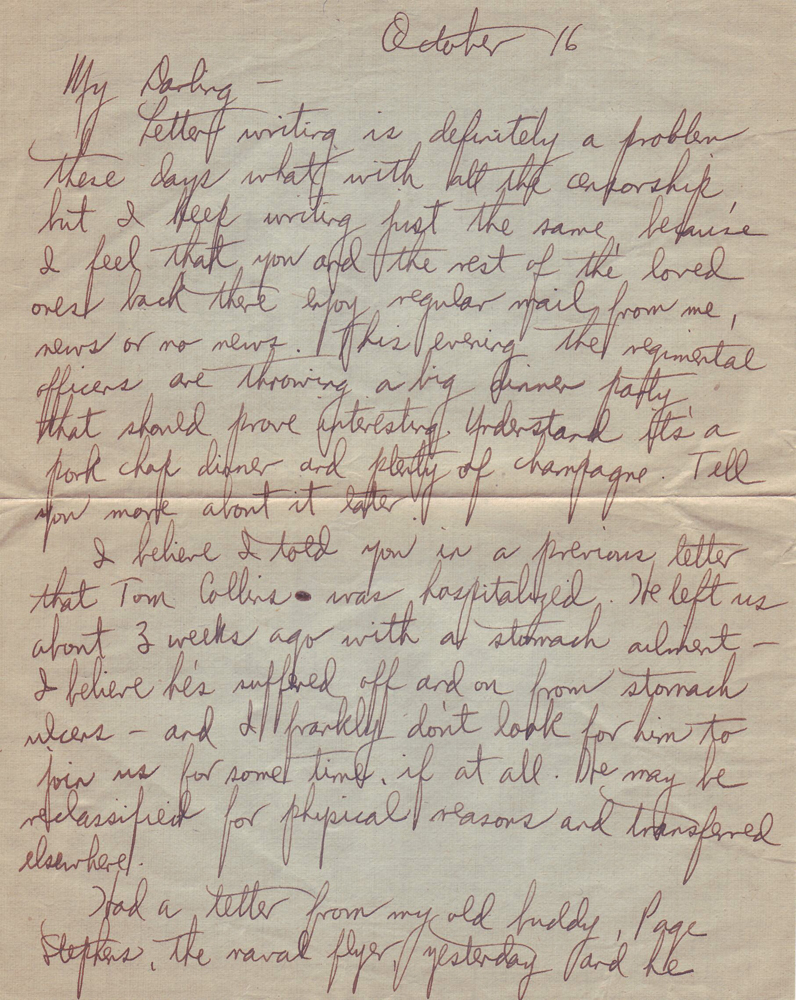 October 16
My Darling —
Letter writing is definitely a problem
these days what with all the censorship,
but I keep writing just the same because
I feel that you and the rest of the loved
ones back there enjoy regular mail from me,
news or no news. This evening the regimental
officers are throwing a big dinner party
that should prove interesting. Understand it's a
pork chop dinner and plenty of champagne. Tell
you more about it later.
I believe I told you in a previous letter
that Tom Collins was hospitalized. He left us
about 3 weeks ago with a stomach ailment —
I believe he's suffered off and on from stomach
ulcers — and I frankly don't look for him to
join us for some time, if at all. He may be
reclassified for physical reasons and transferred
elsewhere.
Had a letter from my old buddy, Page
Stephens, the naval flyer, yesterday and he